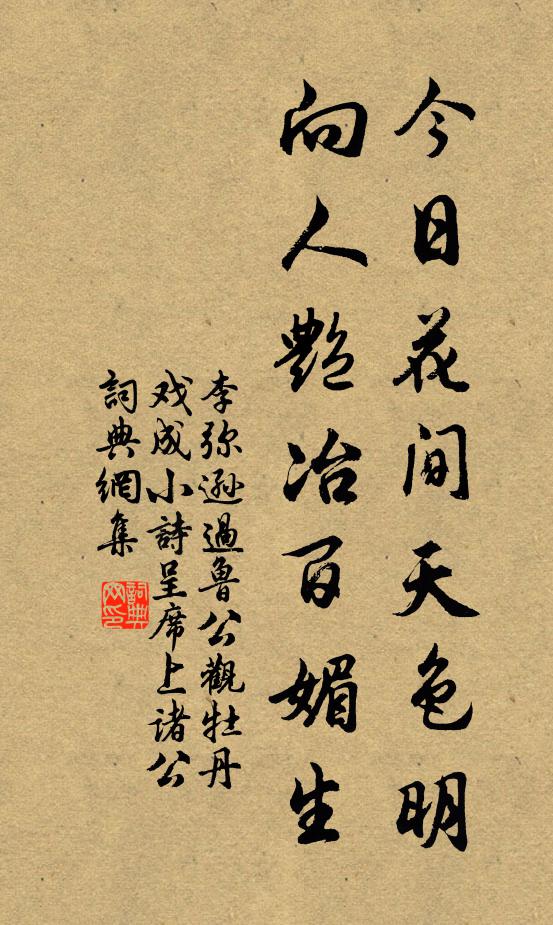 今日花間天色明
向人艷冶百媚生
李弥遜過魯公觀牡丹
戏成小詩呈席上诸公
詞典網集
詞典网印